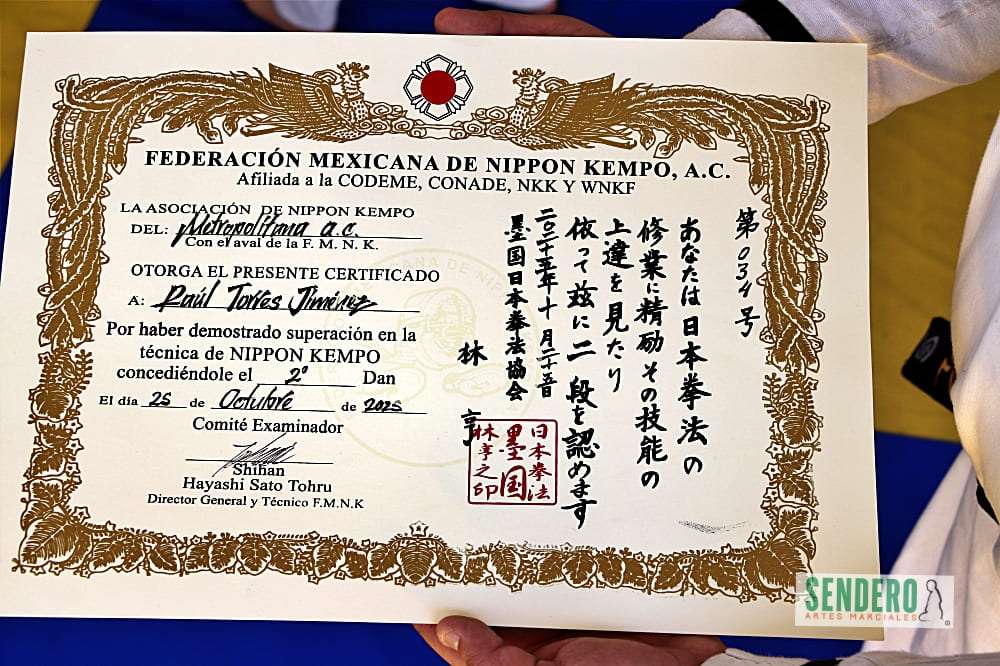 FEDERACIÓN MEXICANA DE NIPPON KEMPO, A.C.
Afiliada a la CODEME, CONADE, NKK Y WNKF
LA ASOCIACIÓN DE NIPPON KEMPO
DEL: Metropolitana a.c.
Con el aval de la F. M. N. K.
OTORGA EL PRESENTE CERTIFICADO
A: Raúl Torres Jiménez
Por haber demostrado superación en la
técnica de NIPPON KEMPO
concediéndole el 2º Dan
El día 25 de Octubre de 2025
Comité Examinador
Shihan
Hayashi Sato Tohru
Director General y Técnico F.M.N.K
第034号
あなたは日本拳法の
修業に精励その技能の
上達を見たり
依って茲に二段を認めます
二〇二五年十月二十五日
墨国日本拳法協会
林 亨
日本拳法
墨国
林亨之印
SENDERO
ARTES MARCIALES